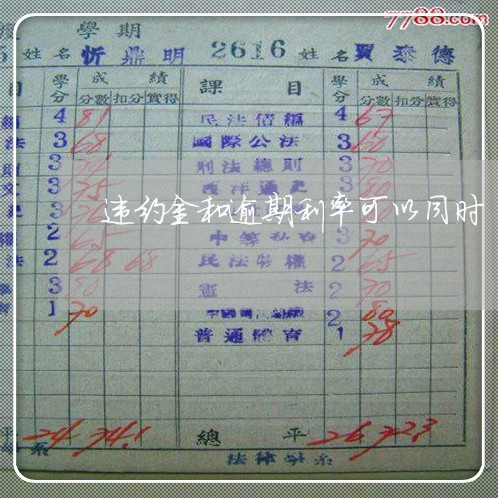 7788.com
學期
姓名 忻鼎明 2616 姓名 賈泰德
目 學分 成績 課目 學分 成績
分數 扣分 實得 分數 扣分 實得
4 81 民法債編 4 67
法 3 68 國際公法 3 60
3 刑法總則 3 70
3 75 西洋通史 3 80
违约金和逾期利率可以同时
2 65 3 70
法 2 68 68 民法物權 2 65
3 80 憲法 2 70
1 70 2 80
普通體育 1 78
平 24 74.1 總平 26 72.3
系 法律學系